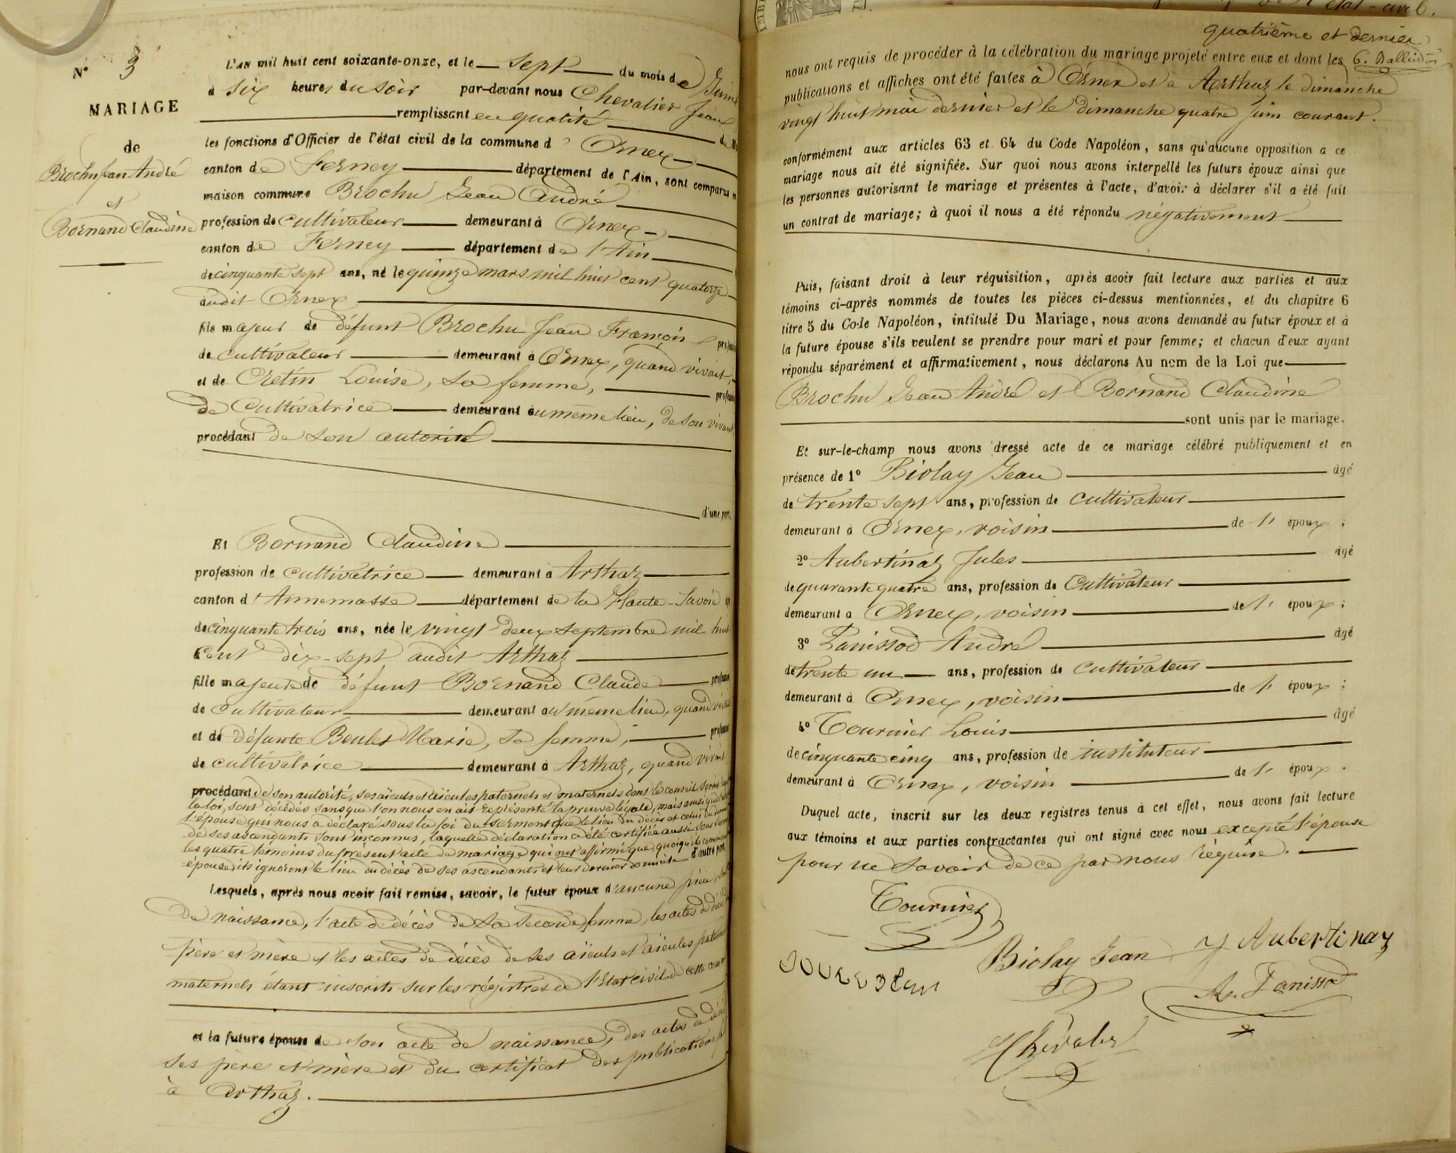 N° 3
MARIAGE
de
Brochu Jean André
et
Bornand Claudine
L'an mil huit cent soixante-onze, et le sept du mois de Juin
à six heures du soir par-devant nous Chevalier Jean
remplissant en qualité de
les fonctions d'Officier de l'état civil de la commune d' Ornex
canton de Ferney département de l'Ain, sont comparus
maison commune Brochu Jean André
profession de cultivateur demeurant à Ornex
canton de Ferney département de l'Ain
de cinquante sept ans, né le quinze mars mil huit cent quatorze
audit Ornex
fils majeur de défunt Brochu Jean François
de cultivateur demeurant à Ornex, quand vivait,
et de Cretin Louise, sa femme,
de cultivatrice demeurant au même lieu, de son vivant
procédant de son autorité
d'une part,
Et Bornand Claudine
profession de cultivatrice demeurant à Arthaz
canton d'Annemasse département de la Haute-Savoie
de cinquante trois ans, née le vingt deux septembre mil huit
cent dix-sept audit Arthaz
fille majeure de défunt Bornand Claude
de cultivateur demeurant au même lieu, quand vivait
et de défunte Marie, sa femme,
de cultivatrice demeurant à Arthaz, quand vivait
procédant de son autorité, ses aïeuls et aïeules paternels et maternels dont le conseil
la loi, sont décédés sans que l'on nous en ait représenté la preuve légale, mais
l'épouse qui nous a déclaré sous la foi du serment que le lieu du décès et celui du
de ses ascendants sont inconnus, laquelle déclaration a été certifiée aussi sous
les quatre témoins du présent acte de mariage qui ont affirmé que quoiqu'ils
épouse ils ignorent le lieu du décès de ses ascendants et leur dernier domicile d'autre part,
Lesquels, après nous avoir fait remise, savoir, le futur époux d'aucune pièce
de naissance, l'acte de décès de sa seconde femme, les actes de décès
père et mère et les actes de décès de ses aïeuls et aïeules paternels
maternels étant inscrits sur les régistres de l'Etat civil de cette
et la future épouse de son acte de naissance, des actes de décès
ses père et mère et du certificat des publications
à Arthaz.
quatrième et dernier
nous ont requis de procéder à la célébration du mariage projeté entre eux et dont les
publications et affiches ont été faites à Ornex et à Arthaz le dimanche
vingt huit mai dernier et le dimanche quatre juin courant.
conformément aux articles 63 et 64 du Code Napoléon, sans qu'aucune opposition a ce
mariage nous ait été signifiée. Sur quoi nous avons interpellé les futurs époux ainsi que
les personnes autorisant le mariage et présentes à l'acte, d'avoir à déclarer s'il a été fait
un contrat de mariage; à quoi il nous a été répondu négativement
Puis, faisant droit à leur réquisition, après avoir fait lecture aux parties et aux
témoins ci-après nommés de toutes les pièces ci-dessus mentionnées, et du chapitre 6
titre 5 du Code Napoléon, intitulé Du Mariage, nous avons demandé au futur époux et à
la future épouse s'ils veulent se prendre pour mari et pour femme; et chacun d'eux ayant
répondu séparément et affirmativement, nous déclarons Au nom de la Loi que
Brochu Jean André et Bornand Claudine
sont unis par le mariage.
Et sur-le-champ nous avons dressé acte de ce mariage célébré publiquement et en
présence de 1° Biolay Jean âgé
de trente sept ans, profession de cultivateur
demeurant à Ornex, voisin de l' époux;
2° Aubertinaz Jules âgé
de quarante quatre ans, profession de Cultivateur
demeurant a Ornex, voisin de l' époux;
3° Panissod André âgé
de trente un ans, profession de cultivateur
demeurant à Ornex, voisin de l' époux;
4° Tournier Louis âgé
de cinquante cinq ans, profession de instituteur
demeurant à Ornex, voisin de l' époux.
Duquel acte, inscrit sur les deux registres tenus à cet effet, nous avons fait lecture
aux témoins et aux parties contractantes qui ont signé avec nous excepté l'épouse
pour ne savoir de ce par nous requise.
Tournier
Biolay Jean J Aubertinaz
A. Panissod
Chevalier